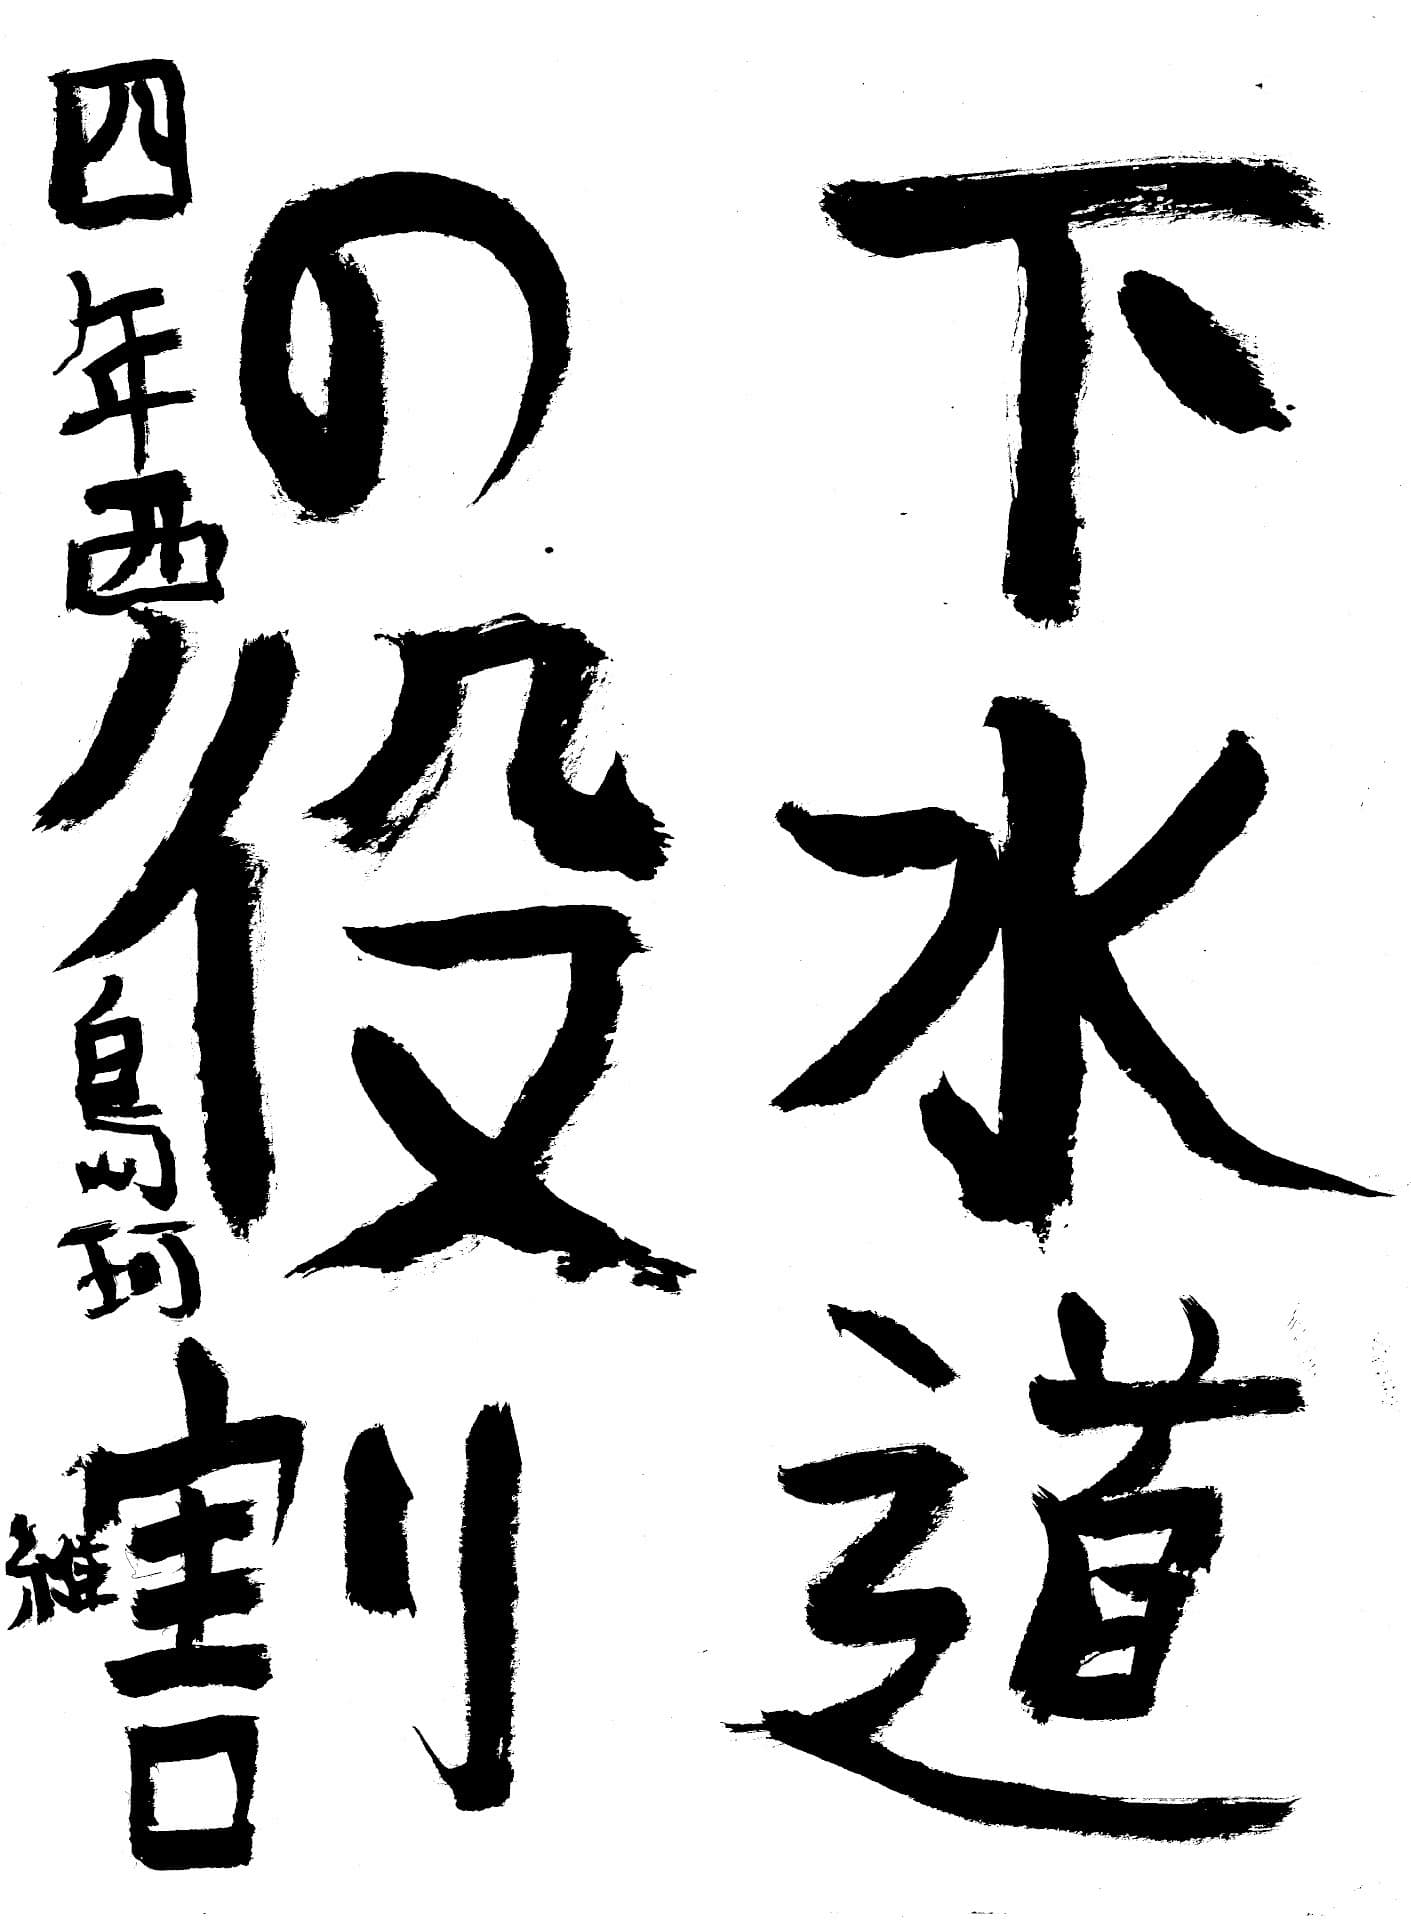 下水道
の役割
四年西島珂維